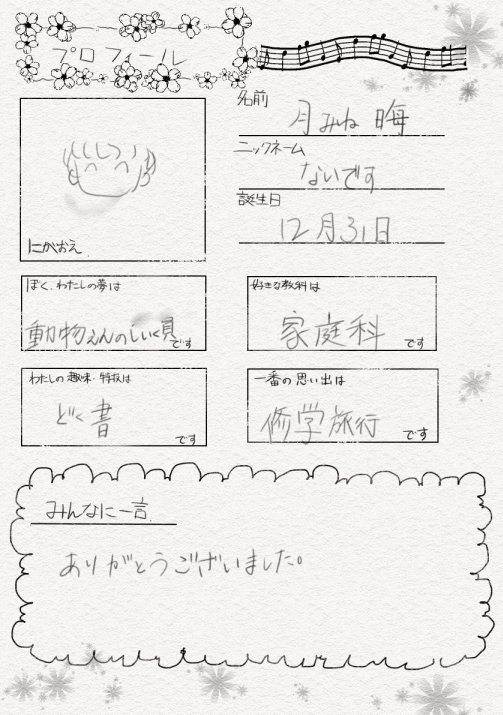 プロフィール
名前
月みね 晦
ニックネーム
ないです
誕生日
12月31日
にがおえ
ぼく、わたしの夢は
動物えんのしいく員
です
好きな教科は
家庭科
です
わたしの趣味・特技は
どく書
です
一番の思い出は
修学旅行
です
みんなに一言
ありがとうございました。